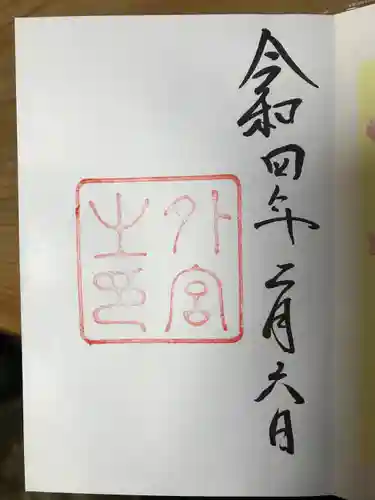 令和四年二月六日
外宮
之印